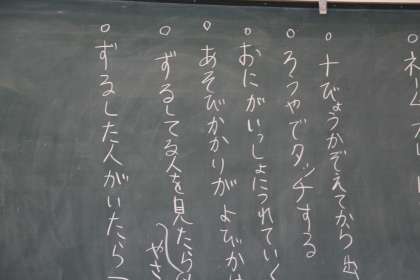 ○ネームプレート
○十びょうかぞえてから出
○ろうやでタッチする
○おにがいっしょにつれていく
○あそびかかりがよびかけ
○ずるしてる人を見たら
やさ
○ずるした人がいたら